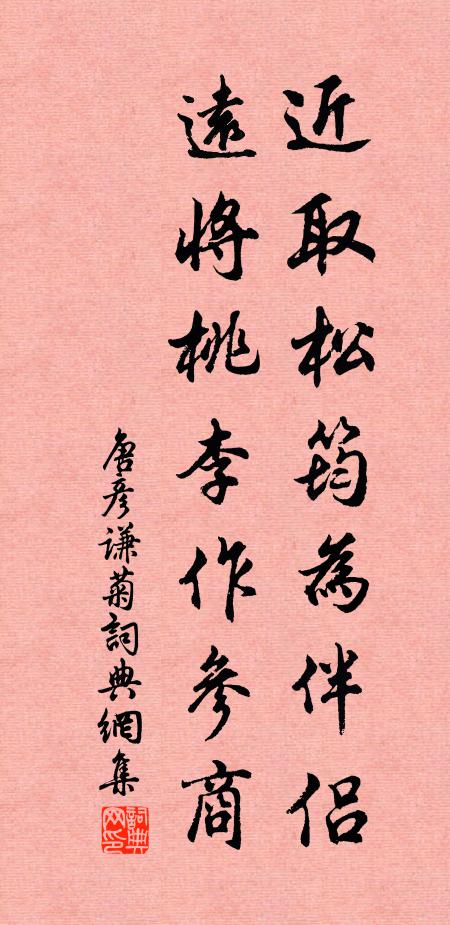 近取松筠為伴侶
遠將桃李作參商
唐彥謙菊詞典網集
詞典网印